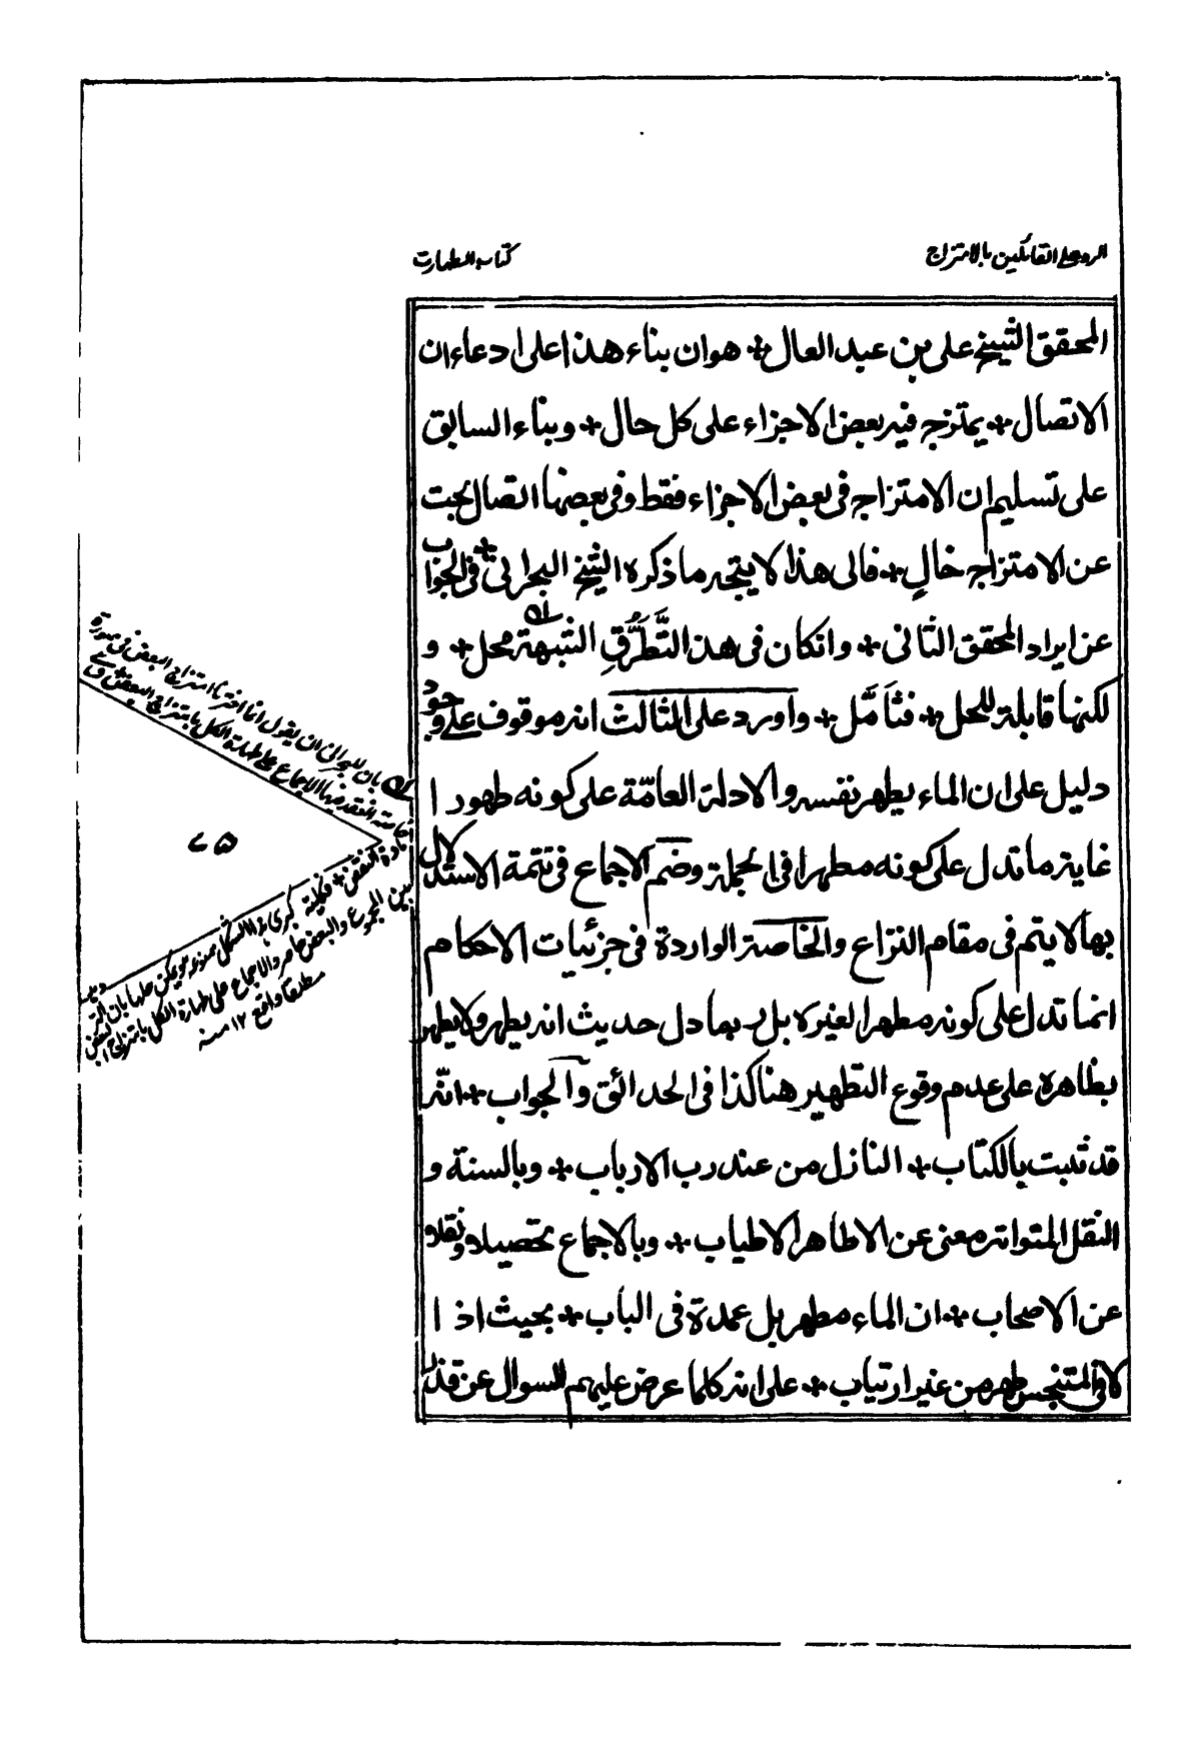 الرد على القائلين بالامتزاج
كتاب الطهارت
المحقق الشيخ على بن عبد العال ❊ هو ان بناء هذا على ادعاء ان
الاتصال ❊ يمتزج فيه بعض الاجزاء على كل حال ❊ وبناء السابق
على تسليم ان الامتزاج فى بعض الاجزاء فقط وفى بعضها اتصال بحت
عن الامتزاج خالٍ ❊ فالى هذا لا يتجه ما ذكره الشيخ البحرانى ❊ فى الجواب
عن ايراد المحقق الثانى ❊ وانكان فى هذا التَّطَرُّقِ الشبهة محل ❊ و
لكنها قابلة للحل ❊ فتأمَّل ❊ واورد على الثالث انه موقوف على وجود
دليل على ان الماء يطهر نفسه والادلة العامّة على كونه طهورا
غاية ما تدل على كونه مطهرا فى الجملة وضم الاجماع فى تتمة الاستدلال
بها لا يتم فى مقام النزاع والخاصة الواردة فى جزئيات الاحكام
انما تدل على كونه مطهرا لغيره بل ربما دل حديث انه يطهر ولا يطهر
بظاهره على عدم وقوع التطهير هنا كذا فى الحدائق والجواب ❊ انّه
قد ثبت بالكتاب ❊ النازل من عند رب الارباب ❊ وبالسنة و
النقل المتواتره معنى عن الاطاهر الاطياب ❊ وبالاجماع تحصيلا ونقلا
عن الاصحاب ❊ ان الماء مطهر بل عمدة فى الباب ❊ بحيث اذا
لاقى المتنجس طهره من غير ارتياب ❊ على انه كلما عرض عليهم السوال عن قذر
بان للبحرانى ان يقول انا اخترنا امتزاج البعض فى صورة
الاجماع على طهارة الكل بامتزاج البعض
مادة النقض ❊ فكلية كبرى
بين المجموع والبعض والاجماع على طهارة الكل بامتزاج
مطلقا واقع ١٢ منه
٧٥